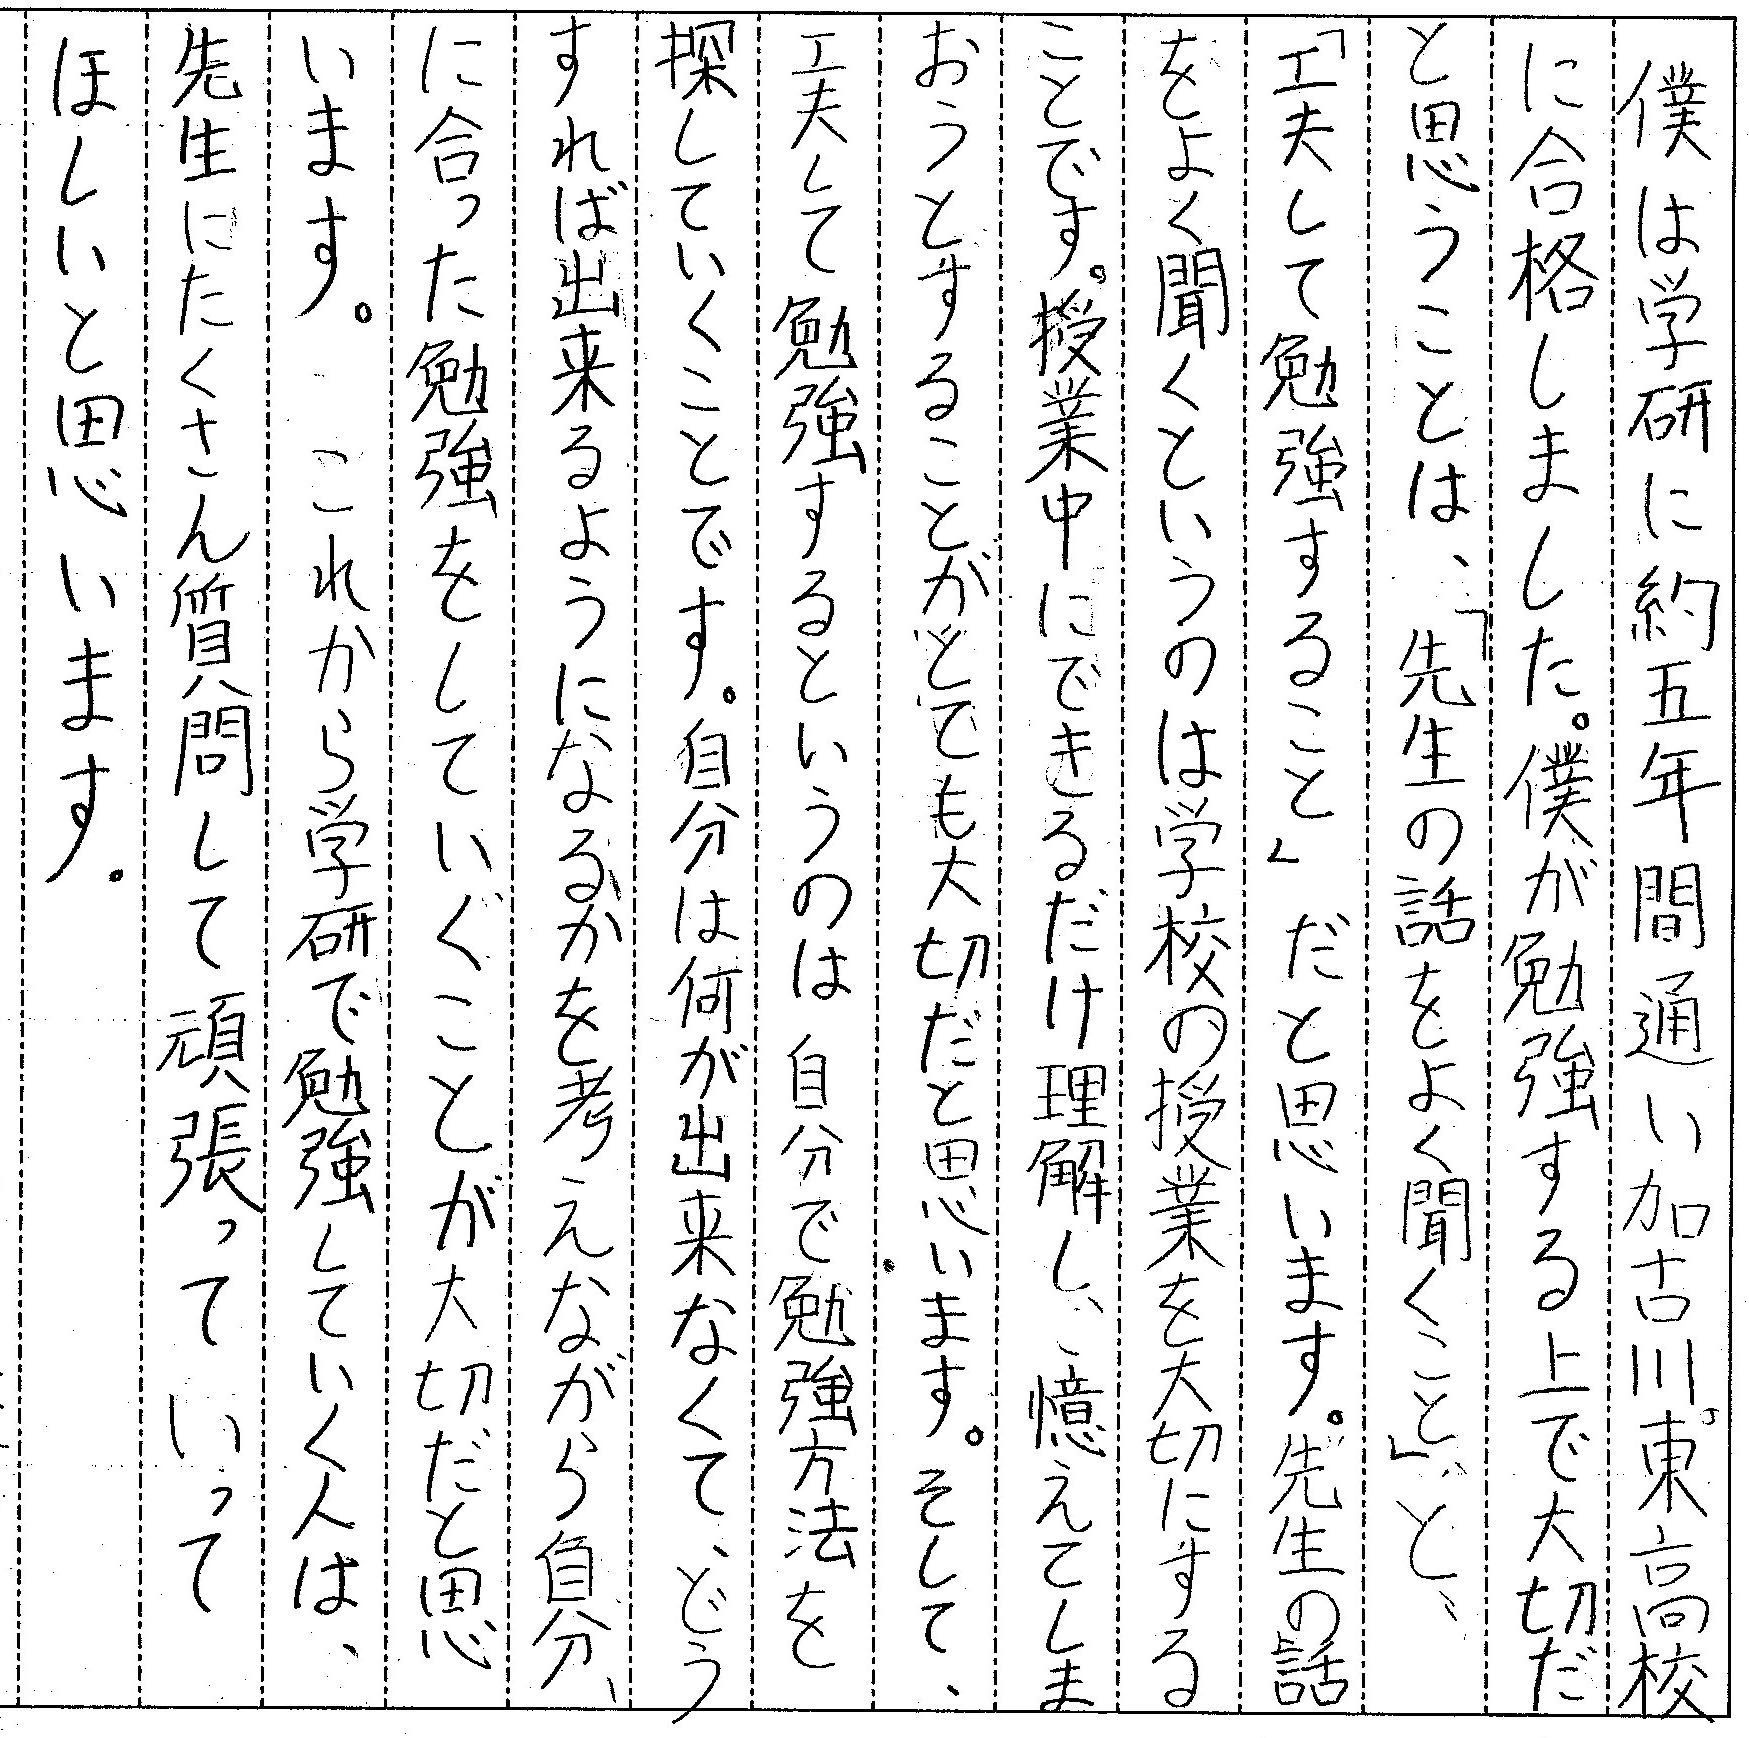 僕は学研に約五年間通い加古川東高校
に合格しました。僕が勉強する上で大切だ
と思うことは、「先生の話をよく聞くこと」と、
「工夫して勉強すること」だと思います。先生の話
をよく聞くというのは学校の授業を大切にする
ことです。授業中にできるだけ理解し、憶えてしま
おうとすることがとても大切だと思います。そして、
工夫して勉強するというのは自分で勉強方法を
探していくことです。自分は何が出来なくて、どう
すれば出来るようになるかを考えながら自分
に合った勉強をしていくことが大切だと思
います。これから学研で勉強していく人は、
先生にたくさん質問して頑張っていって
ほしいと思います。